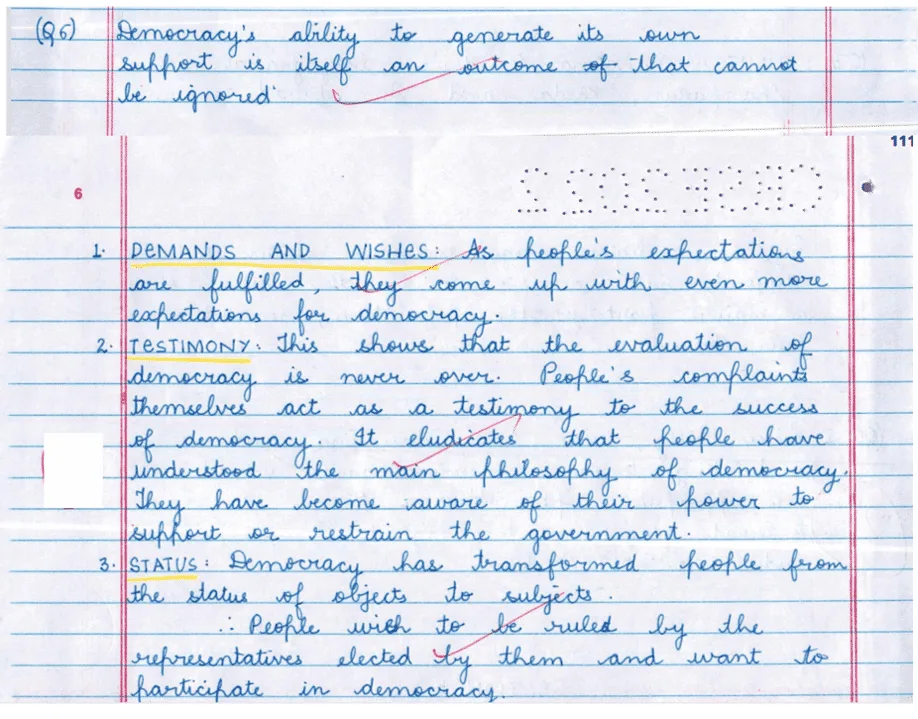 (Q6) Democracy's ability to generate its own
support is itself an outcome of that cannot
be ignored
111
6
1. DEMANDS AND WISHES: As people's expectations
are fulfilled, they come up with even more
expectations for democracy.
2. TESTIMONY: This shows that the evaluation of
democracy is never over. People's complaints
themselves act as a testimony to the success
of democracy. It eludicates that people have
understood the main philosophy of democracy.
They have become aware of their power to
support or restrain the government.
3. STATUS: Democracy has transformed people from
the status of objects to subjects.
∴ People wish to be ruled by the
representatives elected by them and want to
participate in democracy.